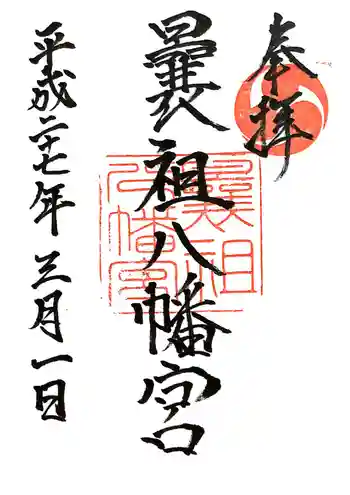 奉拝
曩祖八幡宮
曩祖
八幡宮
平成二十七年三月一日